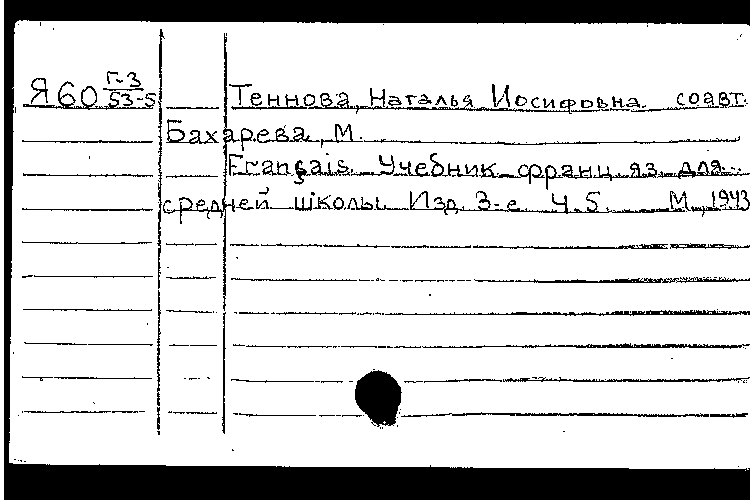 Я60 Г-3/53-5 Теннова, Наталья Иосифовна соавт.
Бахарева, М.
Français. Учебник франц. яз. для
средней школы. Изд. 3-е Ч.5. М., 1943